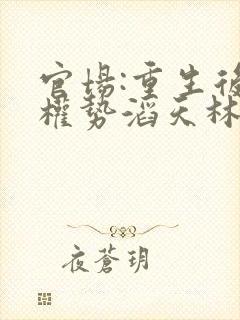 官場:重生後
權勢滔天林
夜蒼玥